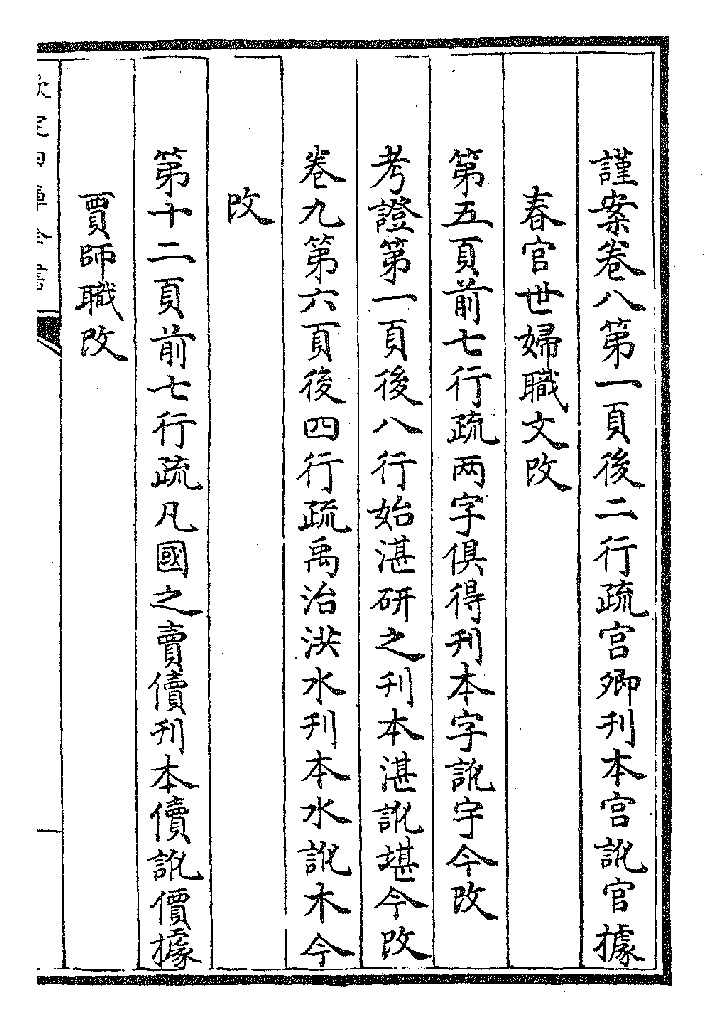 謹案卷八第一頁後二行疏宫卿刊本宫訛官據
春官世婦職文改
第五頁前七行疏两字俱得刋本字訛宇今改
考證第一頁後八行始湛研之刋本湛訛堪今改
卷九第六頁後四行疏禹治洪水刋本水訛木今
改
第十二頁前七行疏凡國之賣儥刋本儥訛價據
賈師職改